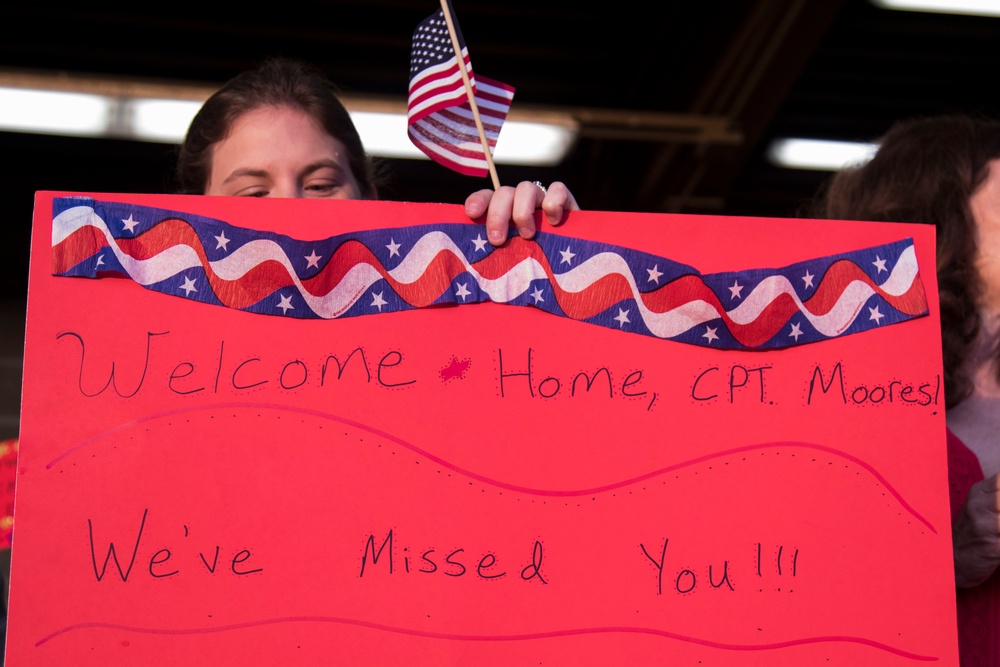 Welcome Home, CPT. Moores!
We've Missed You!!!